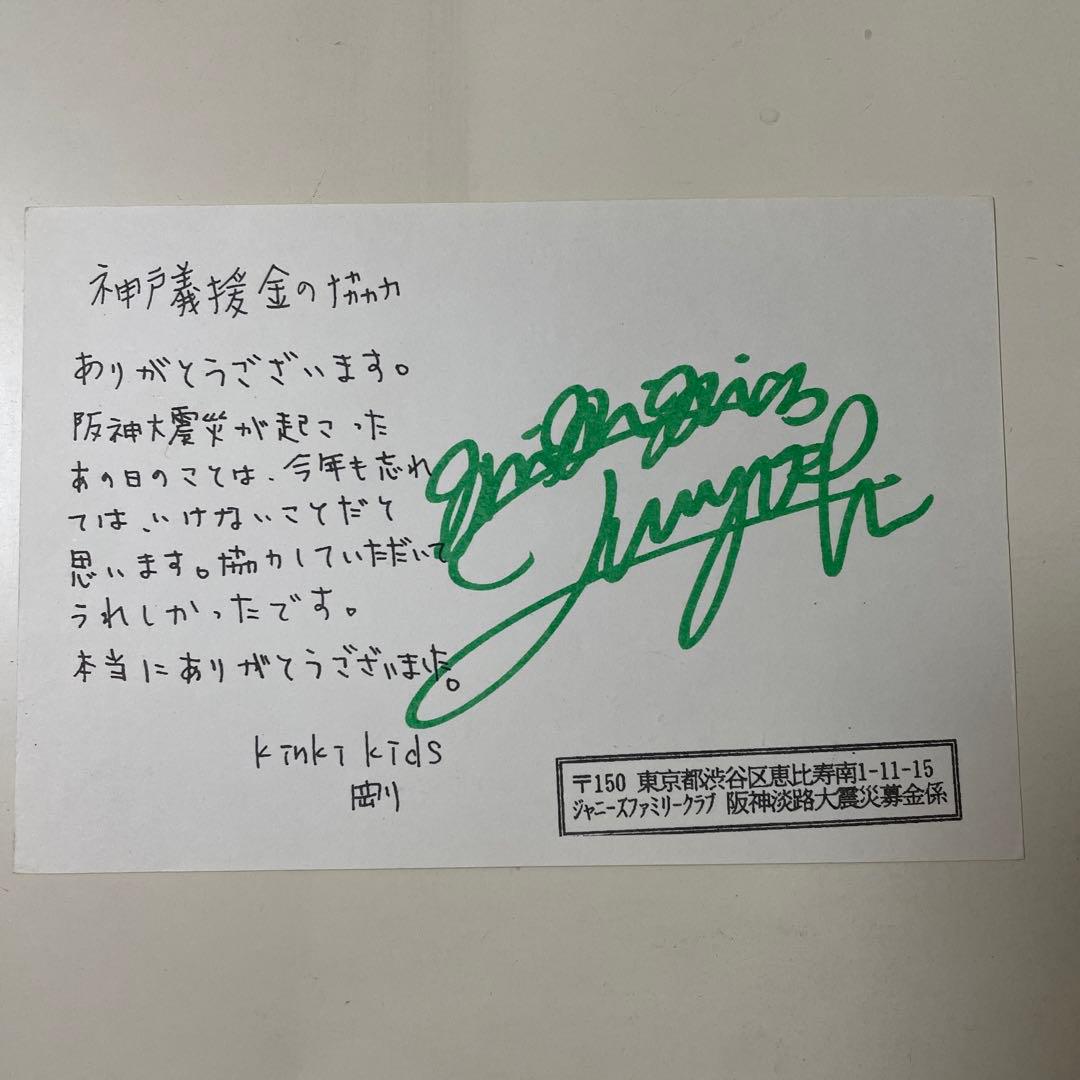 神戸義援金の協力
ありがとうございます。
阪神大震災が起こった
あの日のことは、今年も忘れ
ては、いけないことだと
思います。協力していただいて
うれしかったです。
本当にありがとうございました。
kinki kids
剛
〒150 東京都渋谷区恵比寿南1-11-15
ジャニーズファミリークラブ 阪神淡路大震災募金係